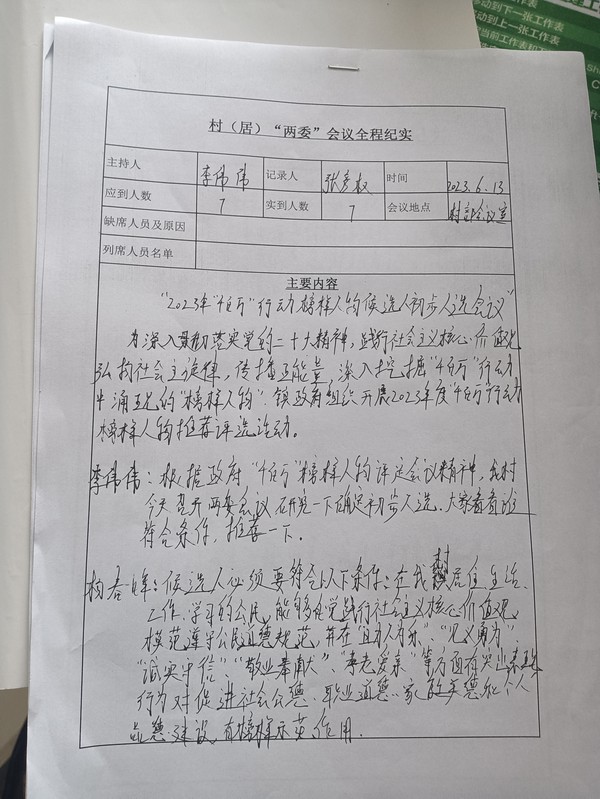 移动到下一张工作表
移动到上一张工作表
当前工作表和下
村（居）“两委”会议全程纪实
主持人 李伟伟 记录人 张彦权 时间 2023.6.13
应到人数 7 实到人数 7 会议地点 村部会议室
缺席人员及原因
列席人员名单
主要内容
“2023年“千百万”行动榜样人物候选人初步人选会议”
为深入贯彻落实党的二十大精神，践行社会主义核心价值观
弘扬社会主旋律，传播正能量，深入挖掘“千百万”行动
中涌现的“榜样人物”，镇政府组织开展2023年度“千百万”行动
榜样人物推荐评选活动。
李伟伟：根据政府“千百万”榜样人物评定会议精神，我村
今天召开两委会议研究一下确定初步人选。大家看看谁
符合条件，推荐一下。
春晖：候选人必须要符合以下条件：在我村居住生活、
工作、学习的公民，能够自觉践行社会主义核心价值观，
模范遵守公民道德规范，并在“助人为乐”、“见义勇为”
“诚实守信”、“敬业奉献”、“孝老爱亲”等方面有突出表现，
行为对促进社会公德、职业道德、家庭美德和个人
品德建设，有榜样示范作用．